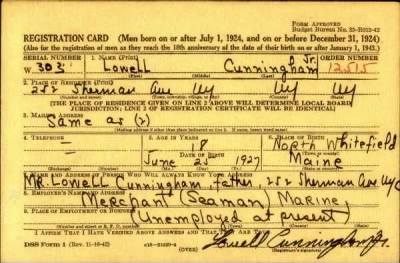 FORM APPROVED
Budget Bureau No. 33-R012-42
REGISTRATION CARD (Men born on or after July 1, 1924, and on or before December 31, 1924)
(Also for the registration of men as they reach the 18th anniversary of the date of their birth on or after January 1, 1943.)
SERIAL NUMBER 1. NAME (Print) ORDER NUMBER
W 303 Lowell Cunningham Jr. 12515
(First) (Middle) (Last)
2. PLACE OF RESIDENCE (Print)
252 Sherman Ave Ny Ny Ny
(Number and street) (State)
[THE PLACE OF RESIDENCE GIVEN ON LINE 2 ABOVE WILL DETERMINE LOCAL BOARD
JURISDICTION; LINE 2 OF REGISTRATION CERTIFICATE WILL BE IDENTICAL]
3. MAILING ADDRESS
Same as (2)
[Mailing address if other than place indicated on line 2. If same, insert word same]
4. TELEPHONE 5. AGE IN YEARS 6. PLACE OF BIRTH
18 North Whitefield
DATE OF BIRTH
June 25 1927 Maine
(Mo.) (Day) (Yr.)
7. NAME AND ADDRESS OF PERSON WHO WILL ALWAYS KNOW YOUR ADDRESS
MR. Lowell Cunningham, father, 252 Sherman Ave NyC
8. EMPLOYER'S NAME AND ADDRESS
Merchant (Seaman) Marine,
9. PLACE OF EMPLOYMENT OR BUSINESS
Unemployed at present
I AFFIRM THAT I HAVE VERIFIED ABOVE ANSWERS AND THAT THEY ARE TRUE.
DSS Form 1 (Rev. 11-16-42) (OVER) Lowell Cunningham Jr.